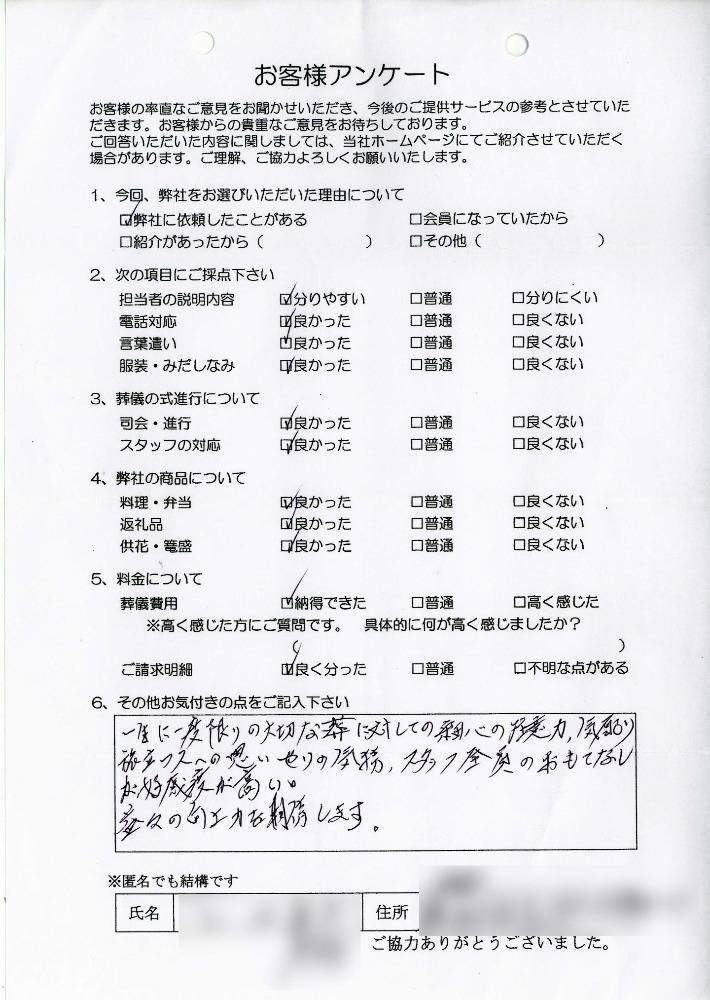 お客様アンケート
お客様の率直なご意見をお聞かせいただき、今後のご提供サービスの参考とさせていた
だきます。お客様からの貴重なご意見をお待ちしております。
ご回答いただいた内容に関しましては、当社ホームページにてご紹介させていただく
場合があります。ご理解、ご協力よろしくお願いいたします。
1、今回、弊社をお選びいただいた理由について
☑弊社に依頼したことがある □会員になっていたから
□紹介があったから（ ） □その他（ ）
2、次の項目にご採点下さい
担当者の説明内容 ☑分りやすい □普通 □分りにくい
電話対応 ☑良かった □普通 □良くない
言葉遣い ☑良かった □普通 □良くない
服装・みだしなみ ☑良かった □普通 □良くない
3、葬儀の式進行について
司会・進行 ☑良かった □普通 □良くない
スタッフの対応 ☑良かった □普通 □良くない
4、弊社の商品について
料理・弁当 ☑良かった □普通 □良くない
返礼品 ☑良かった □普通 □良くない
供花・篭盛 ☑良かった □普通 □良くない
5、料金について
葬儀費用 ☑納得できた □普通 □高く感じた
※高く感じた方にご質問です。 具体的に何が高く感じましたか？
（ ）
ご請求明細 ☑良く分った □普通 □不明な点がある
6、その他お気付きの点をご記入下さい
一生に一度限りの大切な葬に対しての細心の注意力、気配り
旅立つ人への思いやりの気持、スタッフ全員のおもてなし
が好感度が高い。
益々の向上力を期待します。
※匿名でも結構です
氏名 住所
ご協力ありがとうございました。